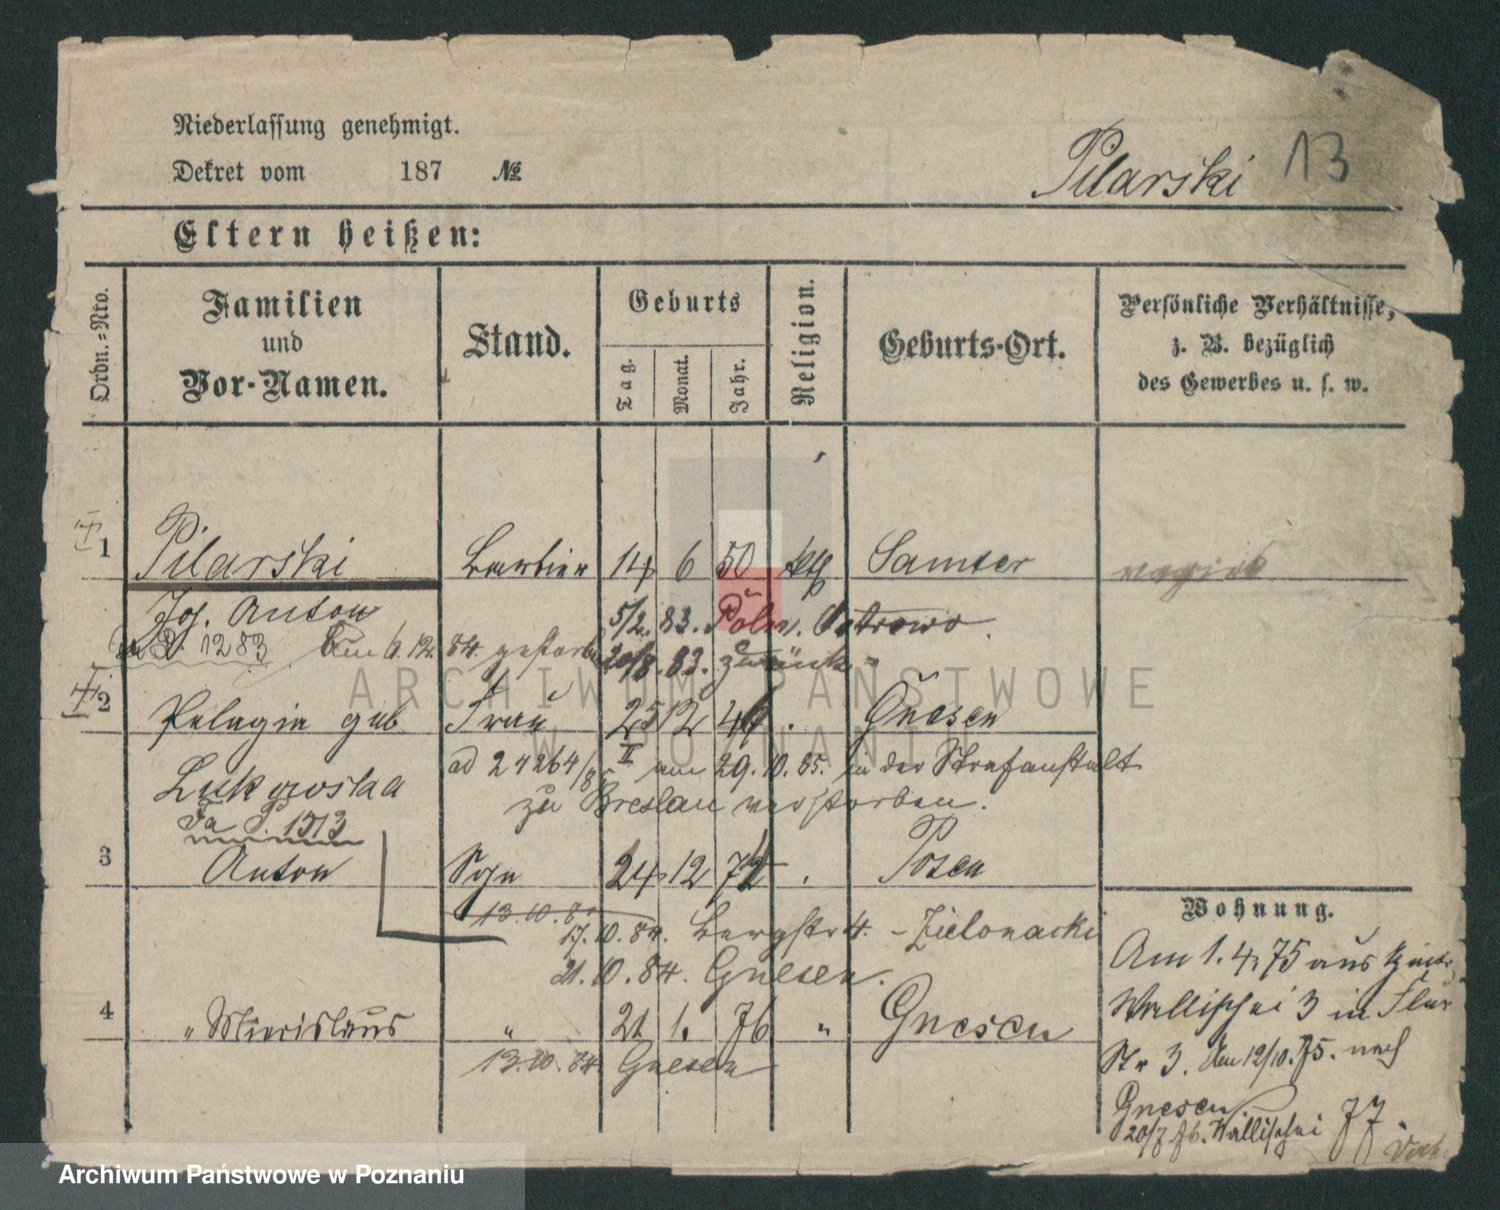 Niederlassung genehmigt.
Dekret vom 187 №
Pilarski 13
Eltern heißen:
Ordn.-Nro.
Familien
und
Vor-Namen.
Stand.
Geburts
Tag.
Monat.
Jahr.
Religion.
Geburts-Ort.
Persönliche Verhältnisse,
z. B. bezüglich
des Gewerbes u. s. w.
1 Pilarski Barbier 14 6 50 kth Samter
Jos. Anton 5/2. 83. Poln. Ostrowo.
1283 Am 6.12. 84. gestorben 20/8. 83. zurück.
2 Pelagia geb. Frau 25 12 Gnesen
Lukowska ad 24264/85 II am 29.10.85. in der Strafanstalt
zu Breslau verstorben.
1513
3 Anton Sohn 24 12 Posen
13.10.84
17.10.84. Bergstr 4. - Zielonacki
21.10.84. Gnesen.
4 " Miecislaus " 21 1. 76 " Gnesen
13.10.84 Gnesen
Wohnung.
Am 1.4.75 aus
Wallischei 3 in
Str 3. Am 12/10.75. nach
Gnesen
20/7.76. Wallischei 77.
ARCHIWUM PAŃSTWOWE
W POZNANIU
Archiwum Państwowe w Poznaniu